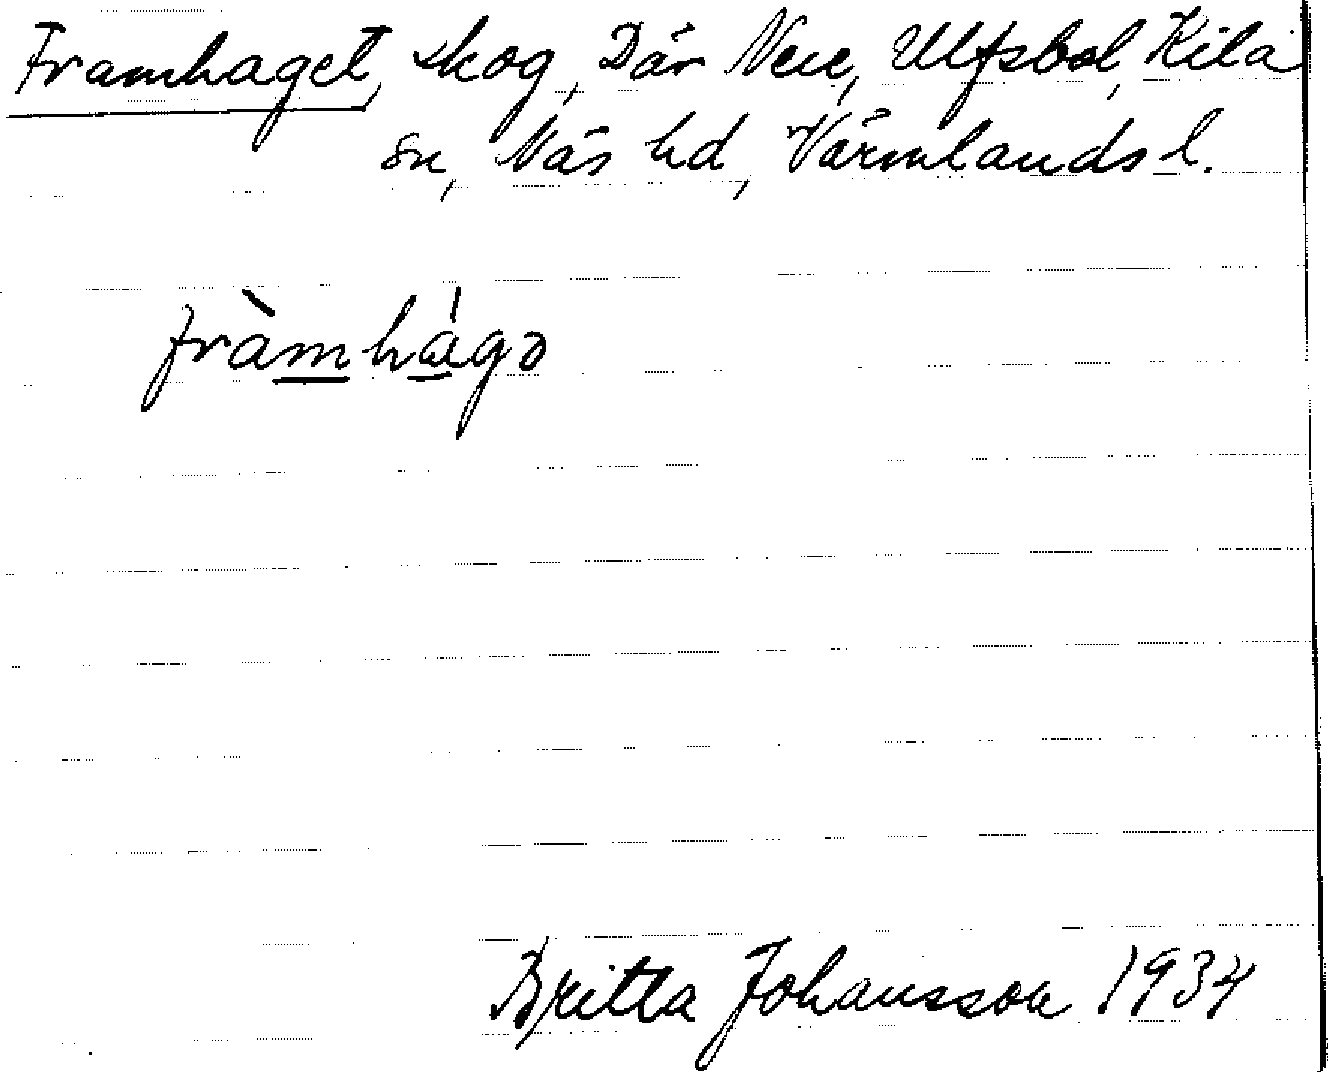 Framhaget, skog, Där Nere, Ulfsbol, Kila
sn, Näs hd, Värmlands l.
fràmhágə
Britta Johansson 1934